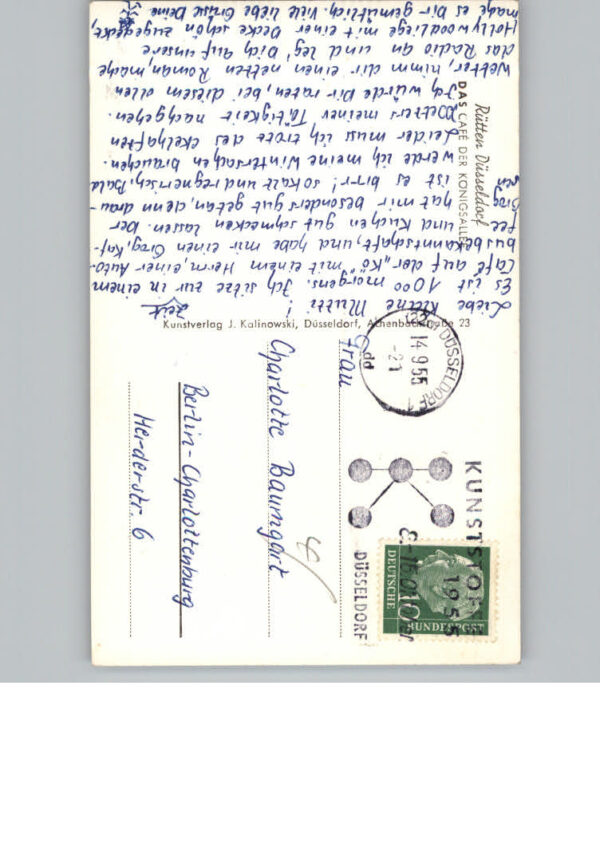 Liebe kleine Mutti!
Es ist 10⁰⁰ morgens. Ich sitze zur Zeit in einem
Café auf der „Kö" mit einem Herrn, einer Auto-
busbekanntschaft, und habe mir einen Grog, Kaf-
fee und Kuchen gut schmecken lassen. Der
Grog hat mir besonders gut getan, denn drau-
ßen ist es birr! so kalt und regnerisch. Bald
werde ich meine Wintersachen brauchen.
Leider muss ich trotz des ekelhaften
Wetters meiner Tätigkeit nachgehen.
Ich würde Dir raten, bei diesem ollen
Wetter, nimm dir einen netten Roman, mache
das Radio an und leg' Dich auf unsere
Hollywoodliege mit einer Decke schön zugedeckt,
mache es Dir gemütlich. Viele liebe Grüsse Deine
Rütten Düsseldorf
DAS CAFÉ DER KÖNIGSALLEE
Kunstverlag J. Kalinowski, Düsseldorf, Achenbachstraße 23
(22a) DÜSSELDORF 1
14.9.55
-21
pp
KUNSTSTOFFE
1955
8.-16. Okt.
DÜSSELDORF
DEUTSCHE
BUNDESPOST
10
Frau
Charlotte Baumgart
Berlin-Charlottenburg
Herderstr. 6